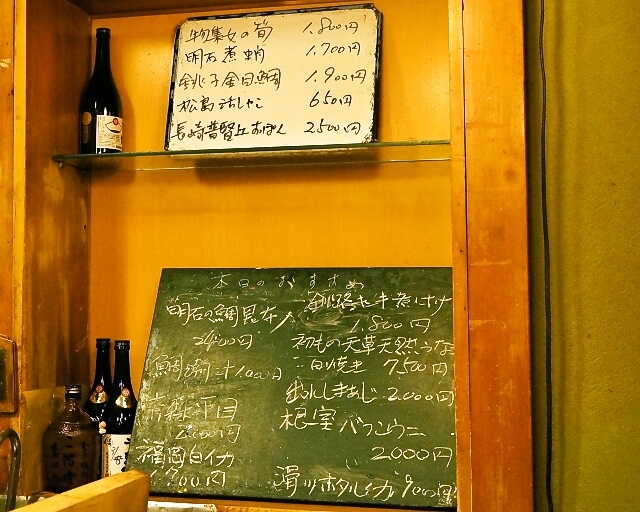 物集女の筍 1.800円
明石煮蛸 1.700円
銚子金目鯛 1.900円
松島活しゃこ 650円
長崎普賢 2500円
本日のおすすめ
明石の鯛昆布〆
2400円
鯛潮汁 1.000円
青森平目
2.000円
福岡白イカ
1.700円
1.800円
初もの天草天然うな
白焼き 7500円
しまあじ 2.000円
根室バフンウニ
2000円
滑川ホタルイカ 900円
二階堂